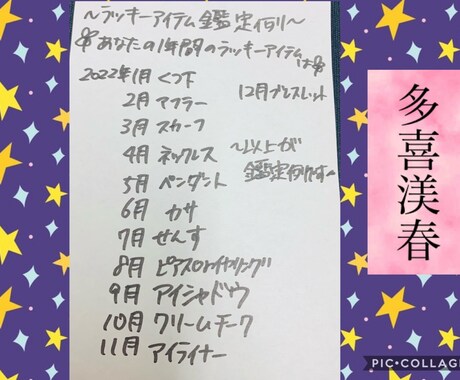 〜ラッキーアイテム鑑定例〜
あなたの1年間のラッキーアイテムは
2022年1月 くつ下
2月 マフラー
3月 スカーフ
4月 ネックレス
5月 ペンダント
6月 カサ
7月 せんす
8月 ピアスorイヤリング
9月 アイシャドウ
10月 クリームチーク
11月 アイライナー
12月 ブレスレット
〜以上が
鑑定例です〜
多喜渼春
PIC•COLLAGE